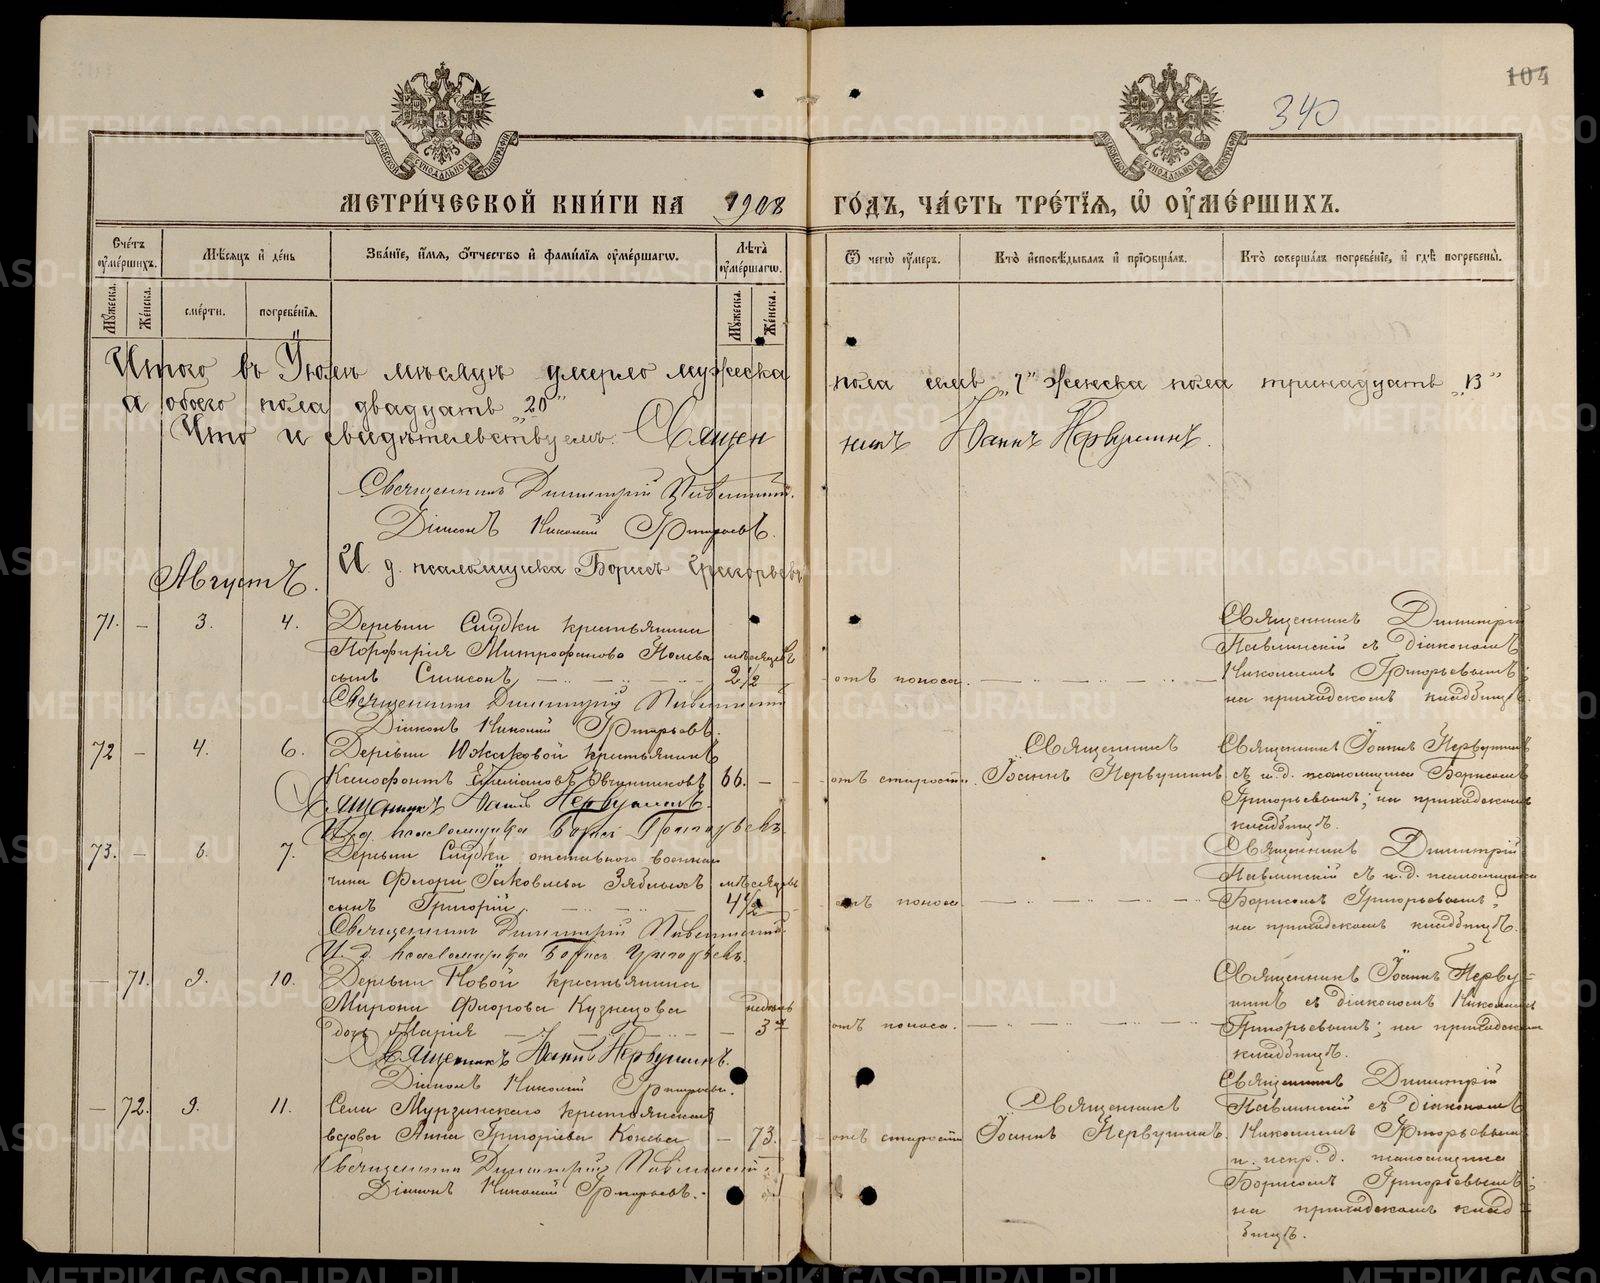 104
340
МЕТРИ́ЧЕСКОЙ КНИ́ГИ НА 1908 ГО́ДЪ, ЧА́СТЬ ТРЕ́ТЇѦ, Ѡ ОУ҆МЕ́РШИХЪ.
Счетъ оумершихъ.
Мѣсяцъ и день
Званіе, имя, отчество и фамилія оумершагѡ.
Лѣта оумершагѡ.
Ѿ чегѡ оумеръ.
Кто исповѣдывалъ и пріобщалъ.
Кто совершалъ погребеніе, и гдѣ погребены.
Мужеска.
Женска.
смерти.
погребенія.
Мужеска.
Женска.
Итого въ Іюлѣ мѣсяцѣ умерло мужеска пола семь „7“ женска пола тринадцать „13“
а обоего пола двадцать „20“
Что и свидѣтельствуемъ. Священникъ Іоаннъ Первушинъ.
Священникъ Димитрій
Діаконъ Николай Григорьевъ.
И. д. псаломщика Борисъ Григорьевъ
Августъ.
71. – 3. 4. Деревни Слудки крестьянина
Порфирія Митрофанова сынъ Симеонъ
мѣсяцевъ 2½
отъ поноса.
Священникъ Димитрій
съ діакономъ
Николаемъ Григорьевымъ;
на приходскомъ кладбищѣ.
Священникъ Димитрій
Діаконъ Николай Григорьевъ.
72 – 4. 6. Деревни Южаковой крестьянинъ
Ксенофонтъ Овчинниковъ 66. –
отъ старости.
Священникъ
Іоаннъ Первушинъ
Священникъ Іоаннъ Первушинъ
съ и. д. псаломщика Борисомъ
Григорьевымъ; на приходскомъ
кладбищѣ.
Священникъ Іоаннъ Первушинъ.
И. д. псаломщика Борисъ Григорьевъ.
73. – 6. 7. Деревни Слудки отставного
чина Флора Іаковлева Зяблыхъ
сынъ Григорій.
мѣсяцевъ 4½
отъ поноса.
Священникъ Димитрій
съ и. д. псаломщика
Борисомъ Григорьевымъ;
на приходскомъ кладбищѣ.
Священникъ Димитрій
И. д. псаломщика Борисъ Григорьевъ.
– 71. 9. 10. Деревни Новой крестьянина
Мирона Флорова Кузнецова
дочь Марія
недѣль 3
отъ поноса.
Священникъ Іоаннъ Перву-
шинъ съ діакономъ Николаемъ
Григорьевымъ; на приходскомъ
кладбищѣ.
Священникъ Іоаннъ Первушинъ.
Діаконъ Николай Григорьевъ.
– 72. 9. 11. Села Мурзинскаго крестьянская
вдова Анна Григоріева Конева – 73.
отъ старости
Священникъ
Іоаннъ Первушинъ.
Священникъ Димитрій
съ діакономъ
Николаемъ Григорьевымъ
и испр. д. псаломщика
Борисомъ Григорьевымъ;
на приходскомъ клад-
бищѣ.
Священникъ Димитрій
Діаконъ Николай Григорьевъ.
METRIKI.GASO-URAL.RU